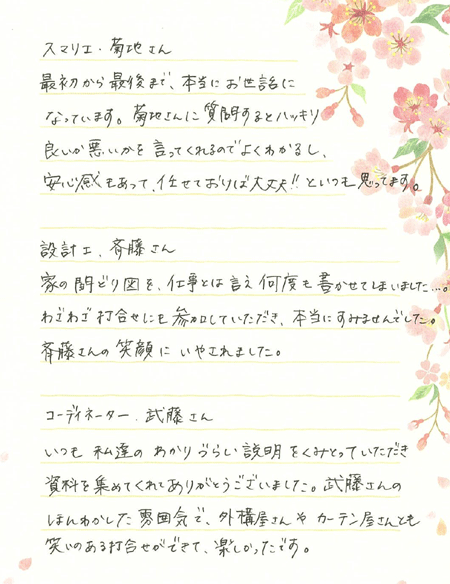 スマリエ・菊地さん
最初から最後まで、本当にお世話に
なっています。菊地さんに質問するとハッキリ
良いか悪いかを言ってくれるのでよくわかるし、
安心感もあって、任せておけば大丈夫!!といつも思ってます。
設計士、斉藤さん
家の間どり図を、仕事とは言え何度も書かせてしまいました…。
わざわざ打合せにも参加していただき、本当にすみませんでした。
斉藤さんの笑顔にいやされました。
コーディネーター、武藤さん
いつも私達のわかりづらい説明をくみとっていただき
資料を集めてくれてありがとうございました。武藤さんの
ほんわかした雰囲気で、外構屋さんやカーテン屋さんとも
笑いのある打合せができて、楽しかったです。